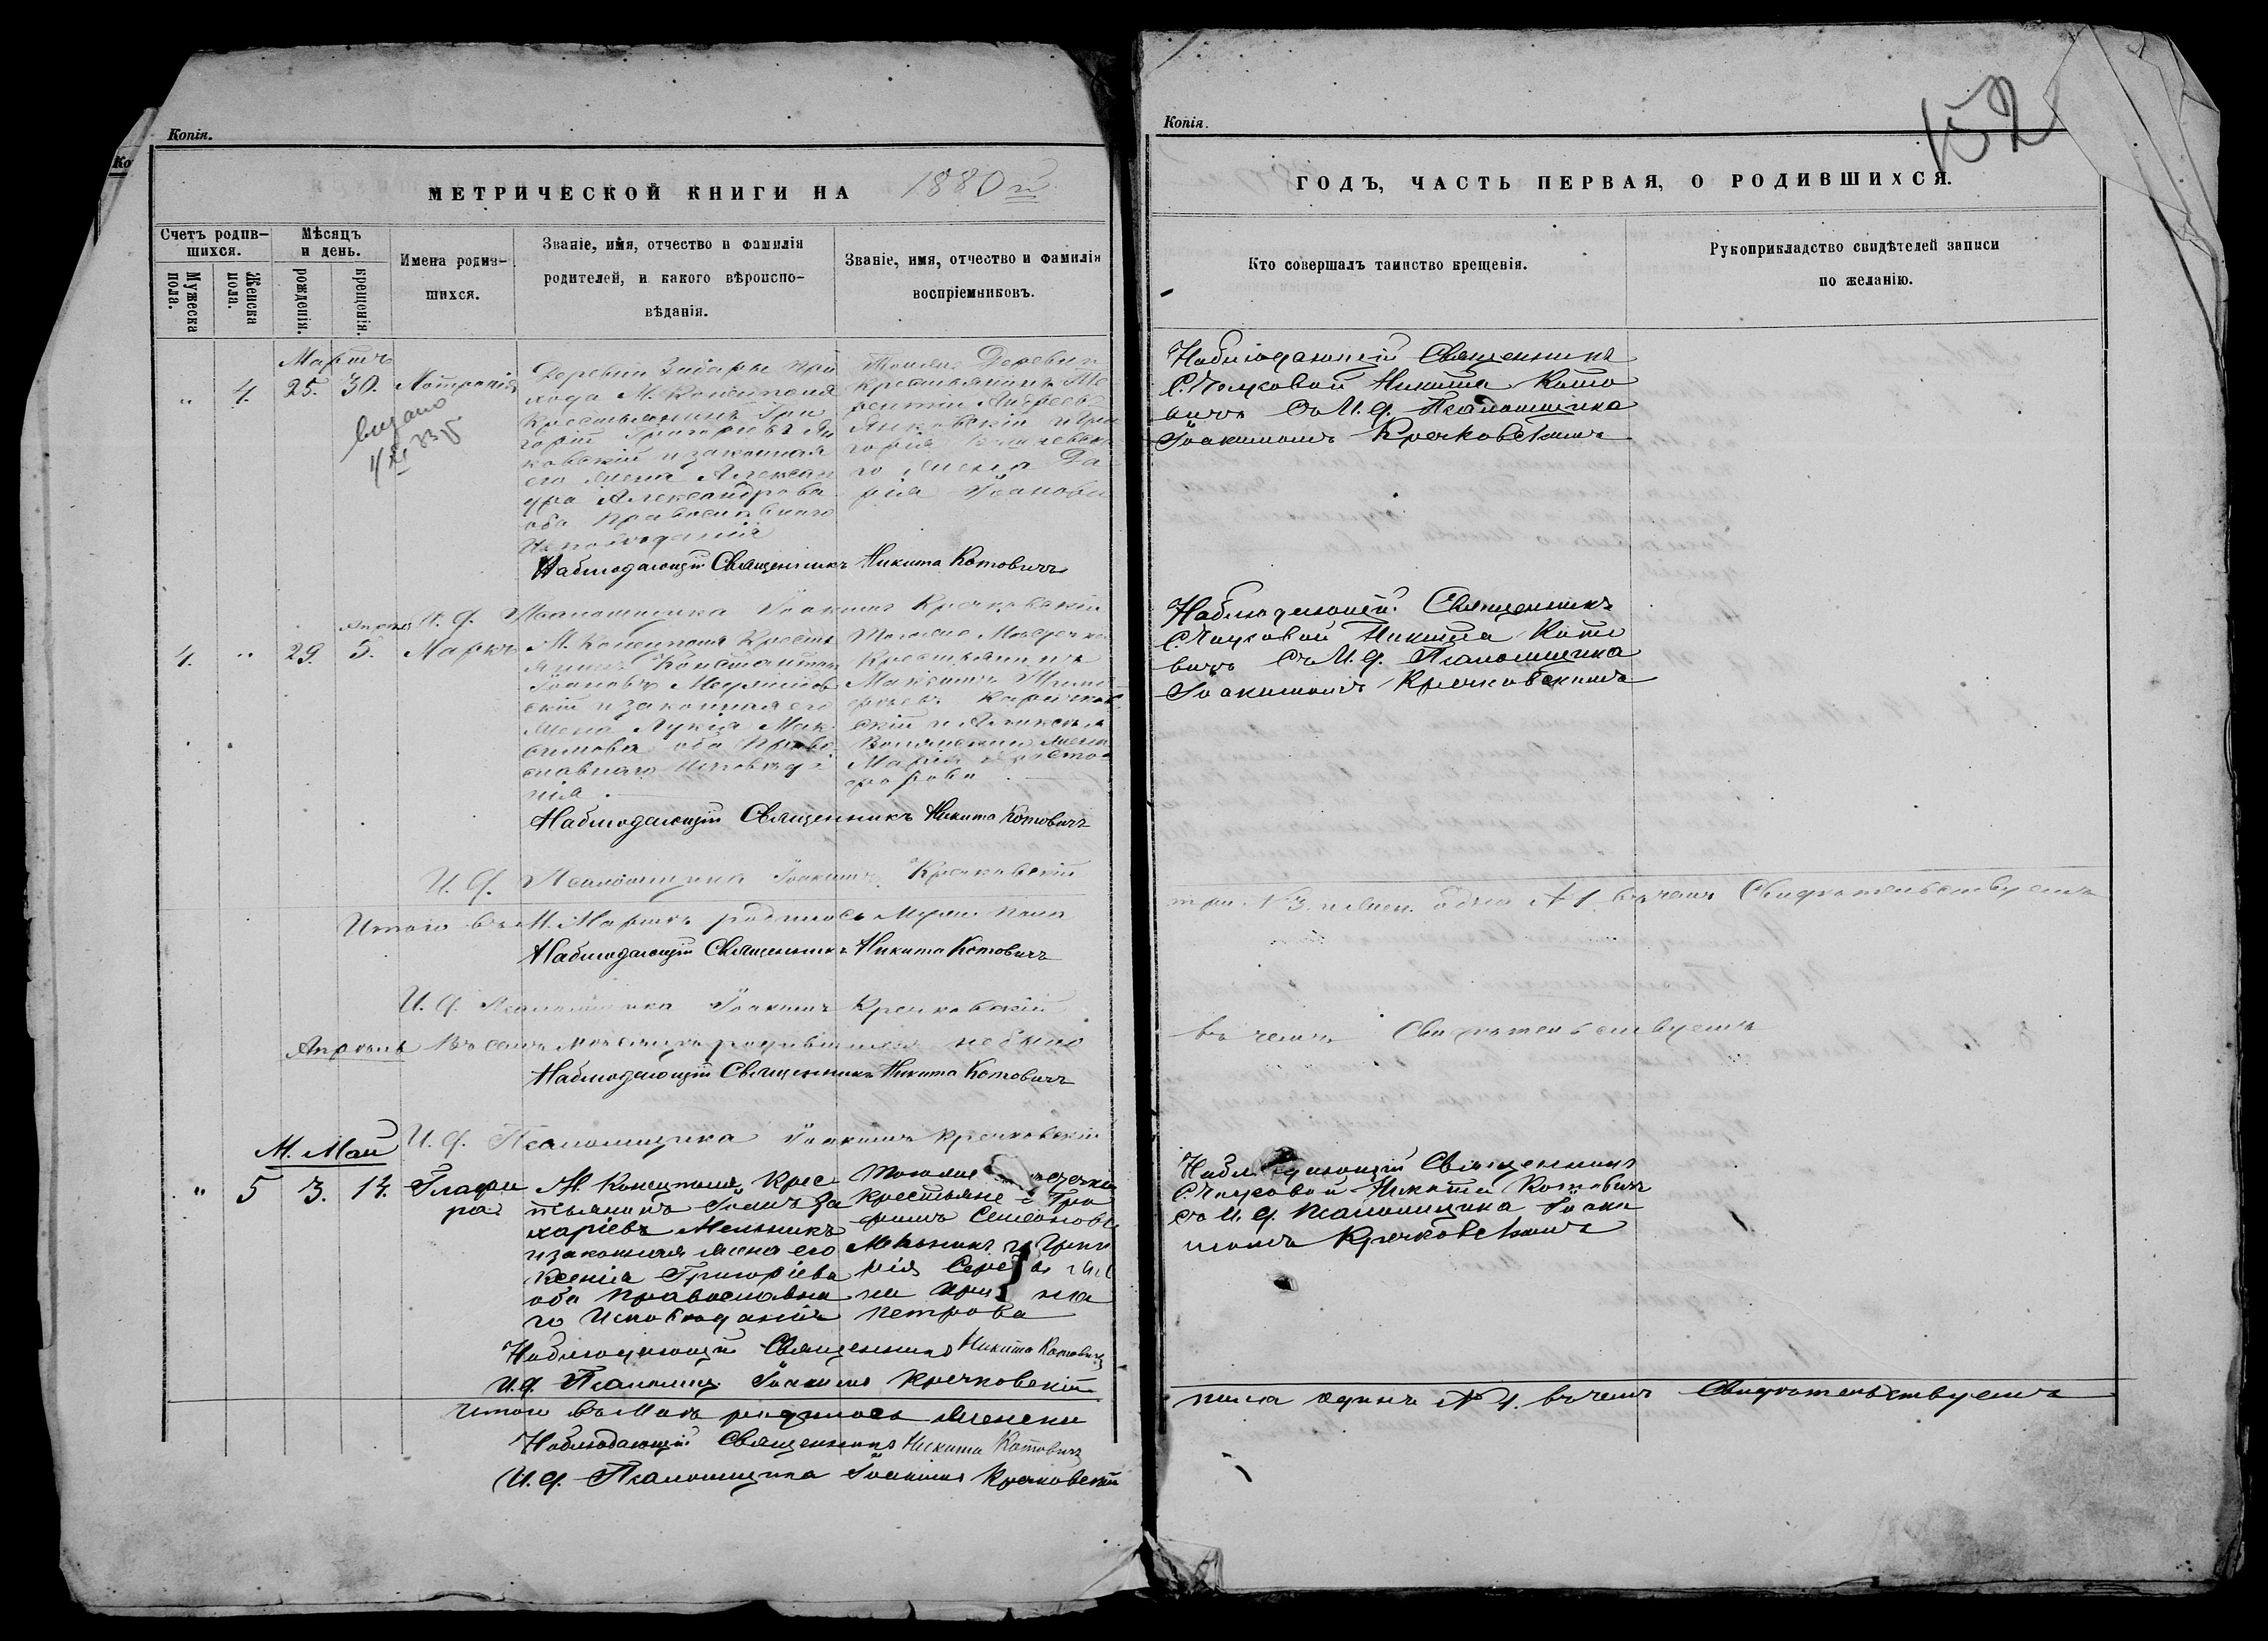 Копія.
Копія.
Ко
152
МЕТРИЧЕСКОЙ КНИГИ НА 1880й
ГОДЪ, ЧАСТЬ ПЕРВАЯ, О РОДИВШИХСЯ.
Счетъ родив-
шихся.
Мужеска
пола.
Женска
пола.
Мѣсяцъ
и день.
рожденія.
крещенія.
Имена родив-
шихся.
Званіе, имя, отчество и фамилія
родителей, и какого вѣроиспо-
вѣданія.
Званіе, имя, отчество и фамилія
воспріемниковъ.
Кто совершалъ таинство крещенія.
Рукоприкладство свидѣтелей записи
по желанію.
Мартъ
„ 4. 25. 30.
видано
Деревни при
хода М. Конецполя
Крестьянинъ Гри
горій Григорьевъ Ян
ковскій и законная
его жена Алексан
дра Александрова
оба Православнаго
Исповѣданія
Тояже Деревни
Крестьянинъ Те
рентій Андреевъ
Янковскій и Гри
горія
го жена Да
рія Іоанова
Наблюдающій Священникъ Никита Котовичъ
И. д. Псаломщика Іоакимъ Кречковскій
Наблюдающій Священникъ
С. Чаусовой Никита Кото
вичъ Съ И. д. Псаломщика
Іоакимомъ Кречковскимъ
Апрѣль
4. „ 29. 5. Маркъ
М. Конецполя Кресть
янинъ Константинъ
Іоановъ
скій и законная его
жена Лукія Мак
симова оба Право
славнаго Исповѣда
нія.
Тогоже Мѣстечка
Крестьянинъ
Максимъ Тимо
фѣевъ
скій и Алексѣя
жена
Марія Христо
форова
Наблюдающій Священникъ Никита Котовичъ
И. д. Псаломщика Іоакимъ Кречковскій
Наблюдающій Священникъ
С. Чаусовой Никита Кото
вичъ Съ И. д. Псаломщика
Іоакимомъ Кречковскимъ
Итого въ М. Мартѣ родилось Муж. пола
три № 3 и Жен. одна № 1 въ чемъ Свидѣтельствуемъ
Наблюдающій Священникъ Никита Котовичъ
И. д. Псаломщика Іоакимъ Кречковскій
Апрѣль Въ семъ мѣсяцѣ родившихся небыло
въ чемъ Свидѣтельствуемъ
Наблюдающій Священникъ Никита Котовичъ
И. д. Псаломщика Іоакимъ Кречковскій
М. Май
„ 5 3. 14. Глафи
ра
М. Конецполя Крес
тьянинъ Іоанъ За
харіевъ Мельникъ
и законная жена его
Ксенія Григоріева
оба Православна
го Исповѣданія
Тогоже
Крестьяне Тро
фимъ Семеновъ
Мельникъ и
Петрова
Наблюдающій Священникъ Никита Котовичъ
И. д. Псаломщ. Іоакимъ Кречковскій
Наблюдающій Священникъ
С. Чаусовой Никита Котовичъ
съ И. д. Псаломщика Іоаки
момъ Кречковскимъ
Итого въ Маѣ родилось Женски
пола одинъ № 1. въ чемъ Свидѣтельствуемъ
Наблюдающій Священникъ Никита Котовичъ
И. д. Псаломщика Іоакимъ Кречковскій